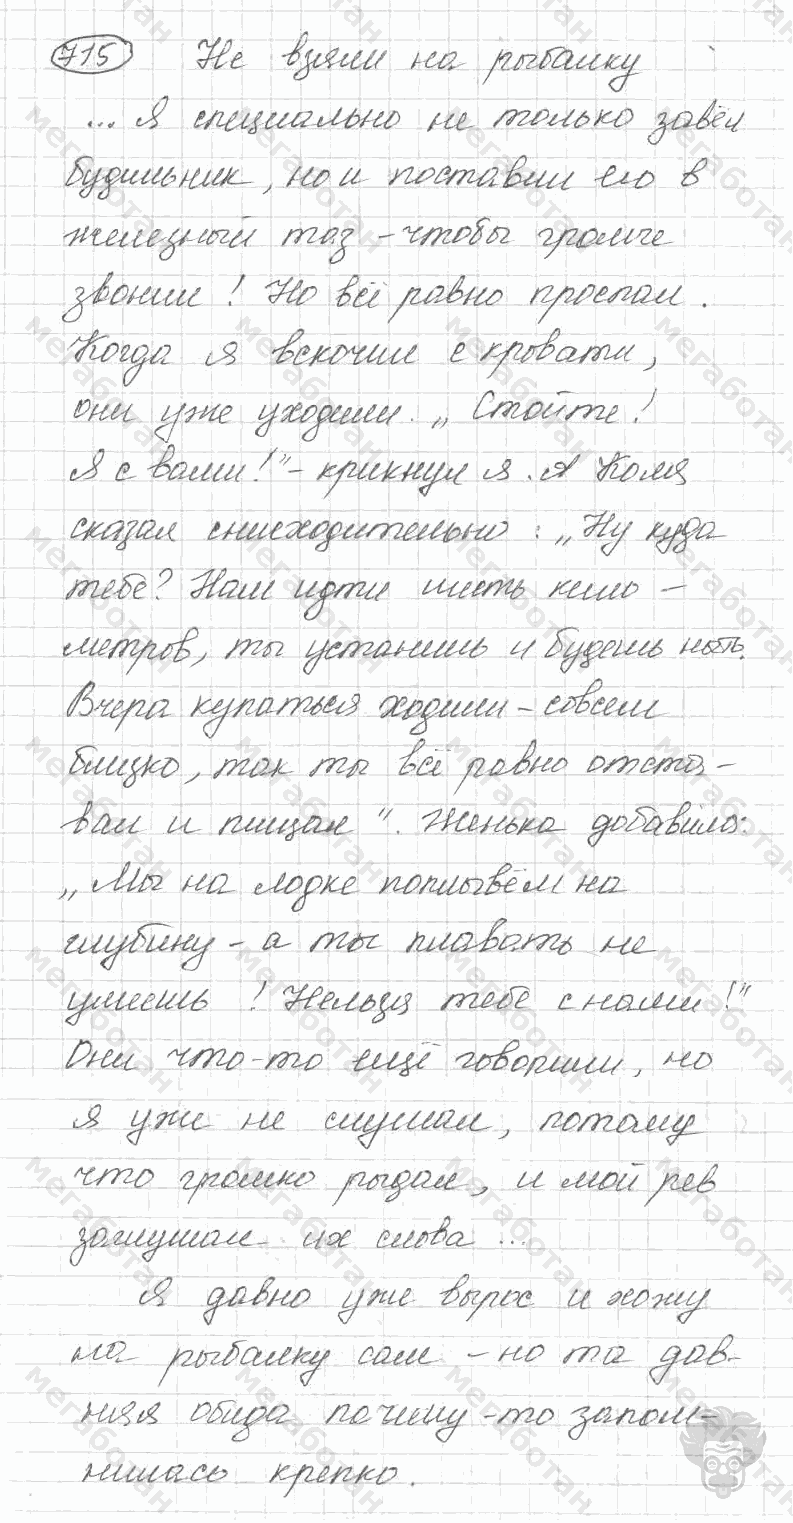 715 Не взяли на рыбалку
... Я специально не только завёл
будильник, но и поставил его в
железный таз - чтобы громче
звонил! Но всё равно проспал.
Когда я вскочил с кровати,
они уже уходили. „Стойте!
Я с вами!" - крикнул я. А Коля
сказал снисходительно: „Ну куда
тебе? Нам идти шесть кило-
метров, ты устанешь и будешь ныть.
Вчера купаться ходили - совсем
близко, так ты всё равно отста-
вал и пищал". Женька добавила:
„Мы на лодке поплывём на
глубину - а ты плавать не
умеешь! Нельзя тебе с нами!"
Они что-то ещё говорили, но
я уже не слушал, потому
что громко рыдал, и мой рев
заглушал их слова ...
Я давно уже вырос и хожу
на рыбалку сам - но та дав-
няя обида почему-то запом-
нилась крепко.
мегаботан